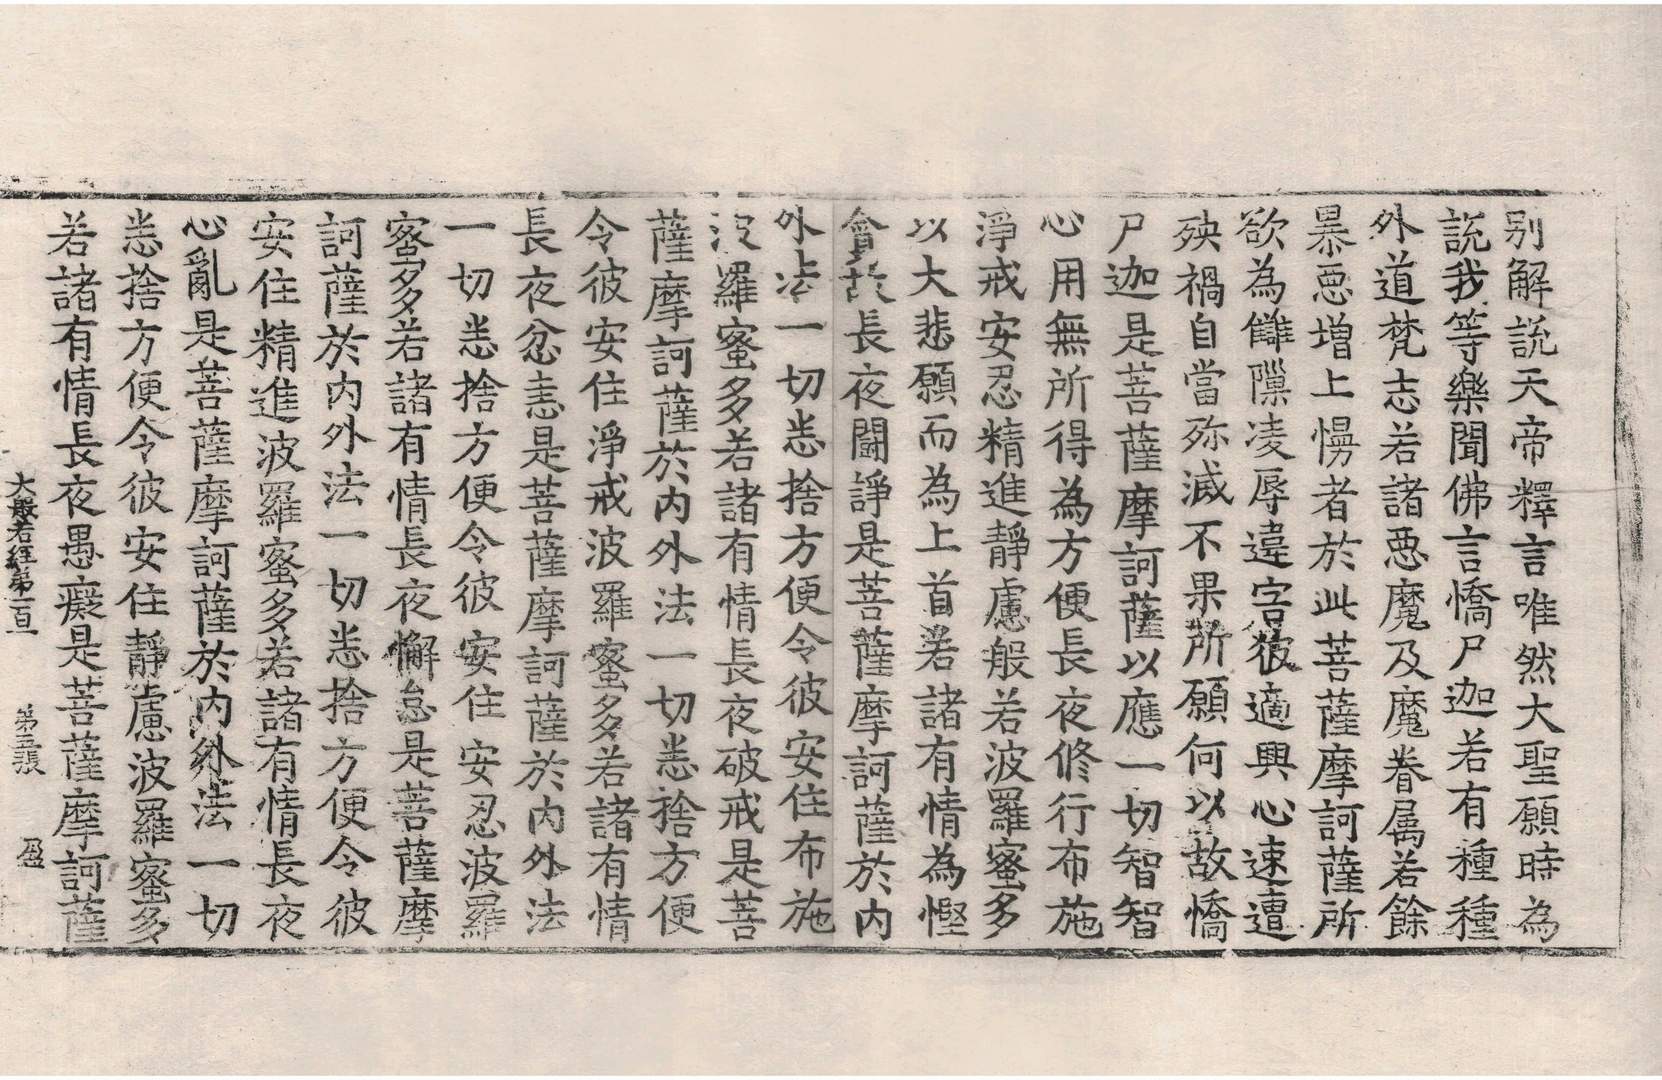 别解説天帝釋言唯然大聖願時為
説我等樂聞佛言憍尸迦若有種種
外道梵志若諸惡魔及魔眷属若餘
暴惡增上慢者於此菩薩摩訶薩所
欲為讎隟凌辱違害彼適興心速遭
殃禍自當殄滅不果所願何以故憍
尸迦是菩薩摩訶薩以應一切智智
心用無所得為方便長夜修行布施
淨戒安忍精進靜慮般若波羅蜜多
以大悲願而為上首若諸有情為慳
貪故長夜鬪諍是菩薩摩訶薩於内
外法一切悉捨方便令彼安住布施
波羅蜜多若諸有情長夜破戒是菩
薩摩訶薩於内外法一切悉捨方便
令彼安住淨戒波羅蜜多若諸有情
長夜忿恚是菩薩摩訶薩於内外法
一切悉捨方便令彼安住安忍波羅
蜜多若諸有情長夜懈怠是菩薩摩
訶薩於内外法一切悉捨方便令彼
安住精進波羅蜜多若諸有情長夜
心亂是菩薩摩訶薩於内外法一切
悉捨方便令彼安住靜慮波羅蜜多
若諸有情長夜愚癡是菩薩摩訶薩
大般若經第一百一 第五張 盈